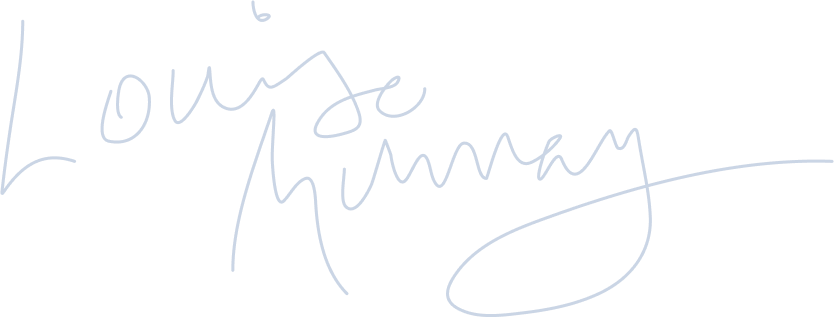 Louise
Murray